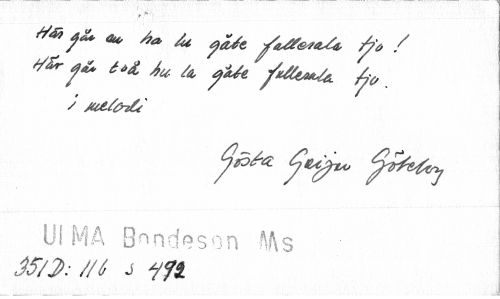 Här går en ha lu gåte fallerala tjo!
Här går två hu la gåte fallerala tjo.
i melodi
Gösta Geijer Göteborg
ULMA Bondeson Ms
351D: 116 s 492